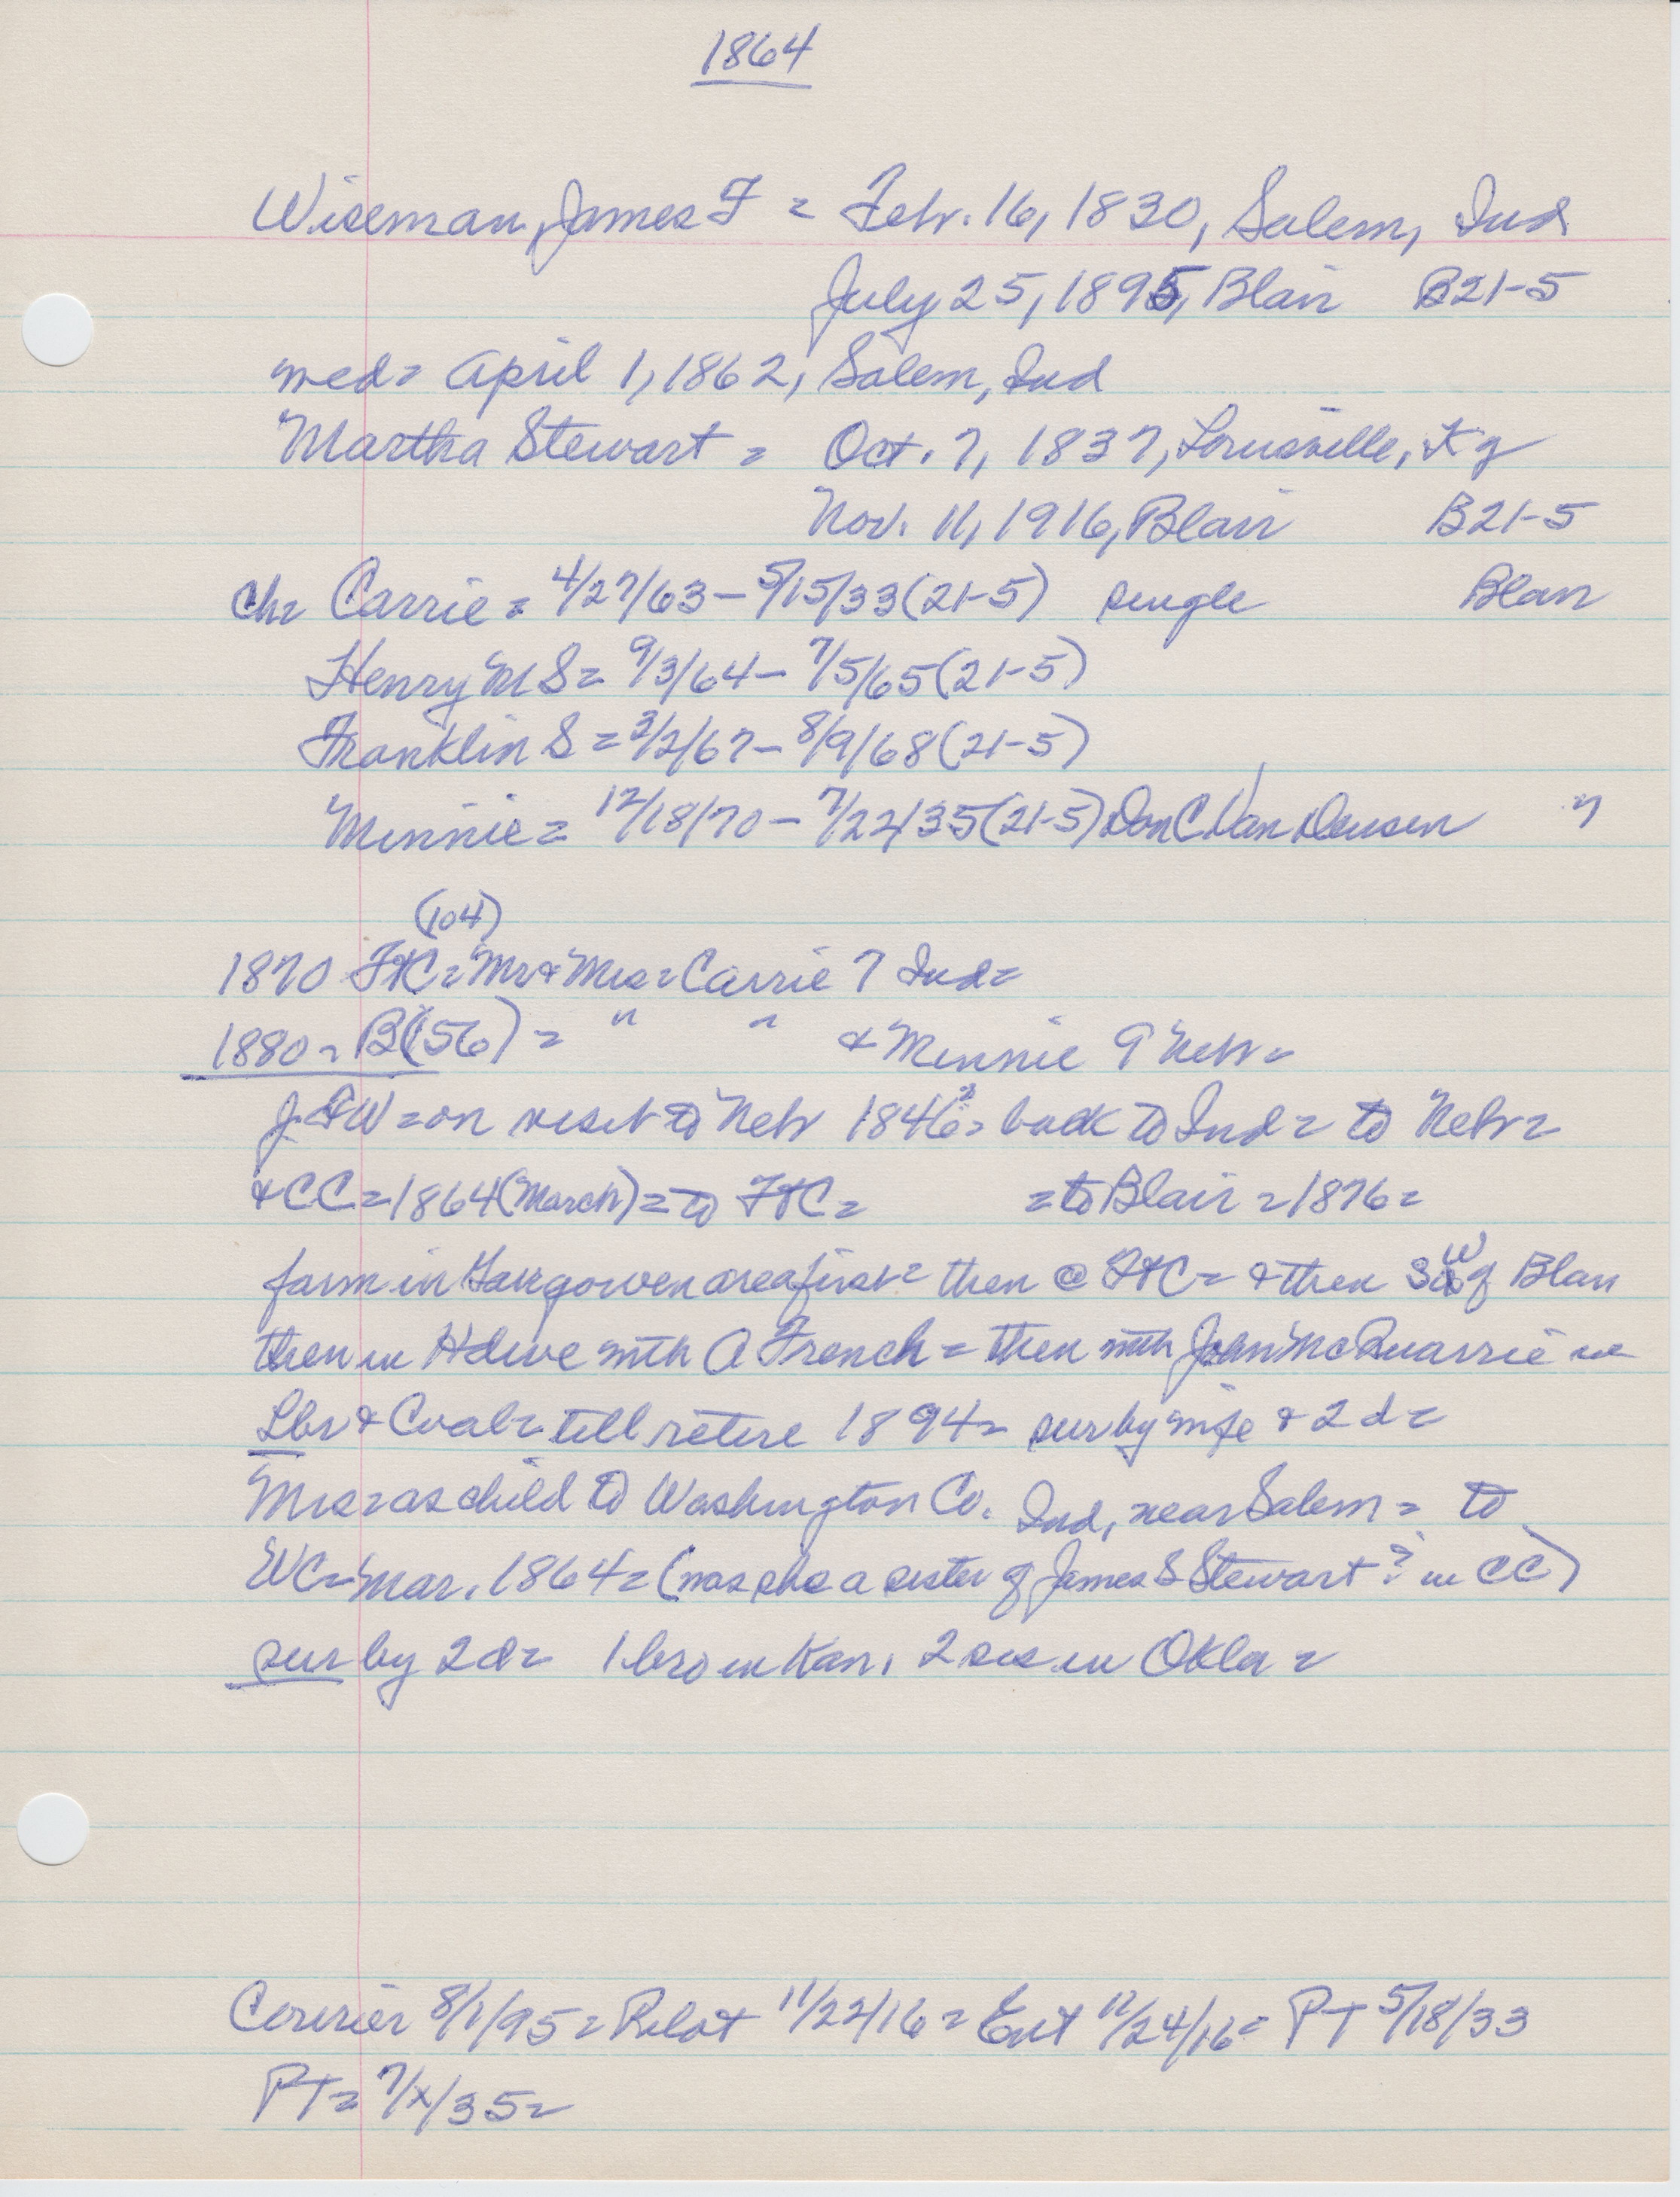 1864
Wiseman, James F = Febr. 16, 1830, Salem, Ind
July 25, 1895, Blair B21-5
med = April 1, 1862, Salem, Ind
Martha Stewart = Oct. 7, 1837, Louisville, Ky
Nov. 11, 1916, Blair B21-5
ch = Carrie = 4/27/63 - 5/15/33 (21-5) single Blair
Henry M S = 9/3/64 - 7/5/65 (21-5)
Franklin S = 3/2/67 - 8/9/68 (21-5)
Minnie = 12/18/70 - 7/22/35 (21-5) Don C Van Deusen "
(104)
1870 FtC = Mr & Mrs = Carrie 7 Ind =
1880 = B(156) = " " & Minnie 9 Nebr =
J F W = on visit to Nebr 1846? = back to Ind = to Nebr =
& CC = 1864 (March) = to FtC = = to Blair = 1876 =
farm in area first = then @ FtC = & then SW of Blair
then in Hdwe with A French = then with John McQuarrie in
Lbr & Coal = till retire 1894 = sur by wife & 2 d =
Mrs = as child to Washington Co. Ind, near Salem = to
WC = Mar. 1864 = (was she a sister of James S Stewart? in CC)
sur by 2 d = 1 bro in Kan, 2 sis in Okla =
Courier 8/1/95 = Pilot 11/22/16 = Ent 11/24/16 = PT 5/18/33
PT = 7/x/35 =